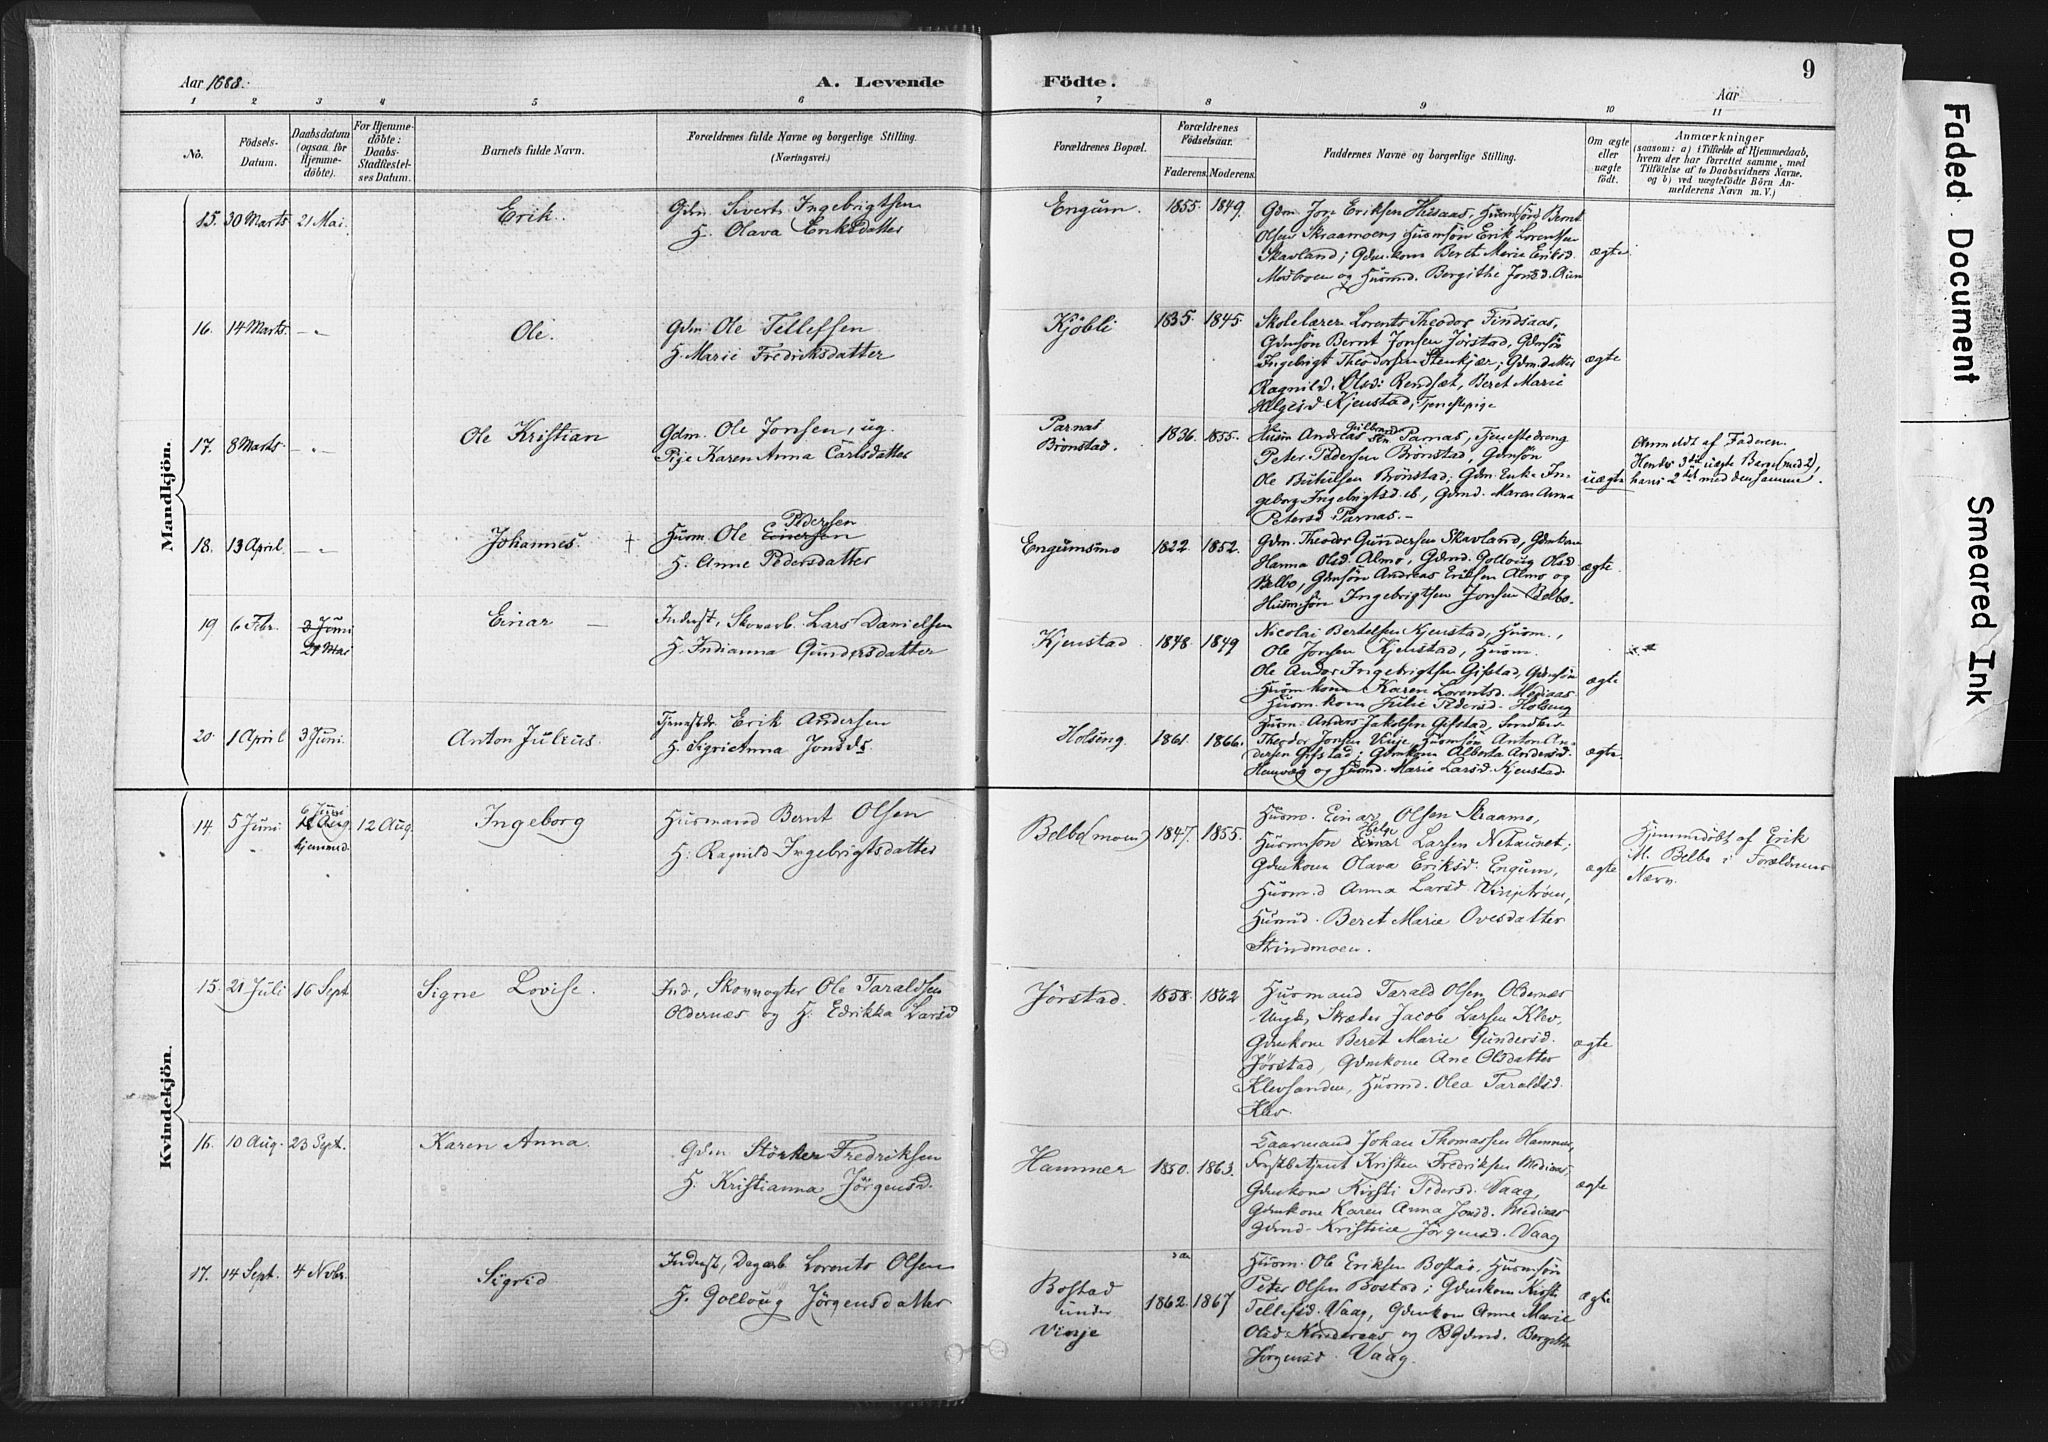 Aar 1888.
A. Levende
Födte.
9
Aar
1 2 3 4 5 6 7 8 9 10 11
No.
Födsels-
Datum.
Daabsdatum
(ogsaa for
Hjemme-
döbte).
For Hjemme-
döbte:
Daabs-
Stadfæstel-
ses Datum.
Barnets fulde Navn.
Forældrenes fulde Navne og borgerlige Stilling.
(Næringsvei.)
Forældrenes Bopæl.
Forældrenes
Födselsaar.
Faderens. Moderens.
Faddernes Navne og borgerlige Stilling.
Om ægte
eller
uægte
födt.
Anmærkninger
(saasom: a) i Tilfælde af Hjemmedaab,
hvem der har forrettet samme, med
Tilföielse af to Daabsvidners Navne.
og b) ved uægtefödte Börn An-
melderens Navn m. V.)
Mandkjön.
15. 30 Marts 21 Mai. Erik.
Gdm. Sivert Ingebrigtsen
H. Olava Eriksdatter
Engum. 1855. 1849.
Gdm. Jon Eriksen Husaas, Husmsön Bernt
Olsen Skraamoen, Husmsön Erik Lorentsen
Skavland; Gdm.kona Beret Maria Eriksd.
Mosbroen og Husmd. Bergithe Jonsd. Aun
ægte
16. 14 Marts. — „ — Ole.
Gdm. Ole Tellefsen
H. Marie Fredriksdatter
Kjöbli 1835. 1845.
Skolelærer Lorents Theodor Findsaas,
Gdmsön Bernt Jonsen Jörstad, Gdmsön
Ingebrigt Theodorsen Stenkjær; Gdm.datter
Ragnild Olsd. Rendsæt, Beret Marie
Helgesd Kjenstad, Tjenestepige
ægte
17. 8 Marts. — „ — Ole Kristian
Gdm. Ole Jonsen, ug.
Pige Karen Anna Carlsdatter
Parnas
Brönstad. 1836. 1855.
Husm Andreas Parnas, Tjenestedreng
Peter Pedersen Brönstad, Gdmsön
Ole Brönstad; Gdm. Enke In-
geborg Ingebrigtsd. ib, Gdmd. Maren Anna
Petersd Parnas. —
uægte
Anmeldt af Faderen.
Hendes 3die uægte Barn (med 2),
hans 2det med den samme.
18. 13 April. — „ — Johannes. †
Husm. Ole Pedersen
H. Anne Pedersdatter
Engumsmo 1822. 1852.
Gdm. Theodor Gundersen Skavland, Gdmkone
Hanna Olsd. Almo, Gdmd. Golloug Olsd
Belbo, Gdmsön Andreas Eriksen Almo og
Husm.sön Ingebrigtsen Jonsen Belbo.
ægte
19 6 Febr. 3 Juni
21 Mai
Einar —
Inderst, Skovarb. Lars Danielsen
H. Indianna Gundersdatter
Kjenstad 1848. 1849
Nicolai Bertelsen Kjenstad, Husm.,
Ole Jonsen Kjenstad, Husm.
Ole Andor Ingebrigtsen Gifstad, Gdmsön
Husm.kona Karen Lorentsd. Mediaas
Husm.kona Julie Pedersd. Holsing
ægte
20. 1 April 3 Juni. Anton Julius.
Tjenestdr. Erik Andersen
H. Sigri Anna Jonsdr.
Holsing. 1861. 1866.
Husm. Anders Jakobsen Gifstad,
Theodor Jonsen Vinje, Husmsön Anton An-
dersen Gifstad; Gdmkona Alberta Andersd.
og Husmd. Marie Larsd. Kjenstad.
ægte.
Kvindekjön.
14 5 Juni 6 Juni
12 Aug.
hjemmd. 12 Aug. Ingeborg
Husmand Bernt Olsen
H. Ragnild Ingebrigtsdatter
Belbo(moen) 1847. 1855.
Husm. Einar Olsen Skraamo,
Husmsön Helge Larsen Netaunet;
Gdmkona Olava Eriksd. Engum,
Husm.d Anna Larsd. Vinjetröen,
Husmd. Beret Marie Ovesdatter
Strindmoen.
ægte
Hjemmedöbt af Erik
M. Belbo i Forældrenes
Nærv.
15. 21 Juli 16 Sept Signe Lovise.
Ind., Skovvogter Ole Taraldsen
Oldernæs og H. Edrikka Larsd
Jörstad. 1858. 1862
Husmand Tarald Olsen Oldernæs
Ungk, Skræder Jacob Larsen Klev,
Gdmkone Beret Marie Gundersd.
Jörstad, Gdmkone Ane Olsdatter
Klevsanden, Husmd. Olea Taraldsd.
Klev.
ægte
16. 10 Aug. 23 Sept. Karen Anna.
Gdm Störker Fredriksen
H. Kristianna Jörgensd.
Hammer 1850. 1863.
Gaarmand Johan Thomassen Hammer,
Forstbetjent Kristen Fredriksen Mediaas,
Gdmkona Kirsti Pedersd. Vaag,
Gdmkone Karen Anna Jonsd. Mediaas
Gdmd. Kristine Jörgensd. Vaag
ægte
17. 14 Sept. 4 Novbr. Sigrid
Inderst, Dagarb. Lorents Olsen
H. Golloug Jörgensdatter
Bostad
under
Vinje 1862. 1867
Husm. Ole Eriksen Bostad, Husmsön
Peter Olsen Bostad; Gdmkona Kirsti
Tellefsd. Vaag, Gdmkona Anne Marie
Olsd. og Gdmd. Bergitte
Jörgensd. Vaag.
ægte
Faded Document
Smeared Ink